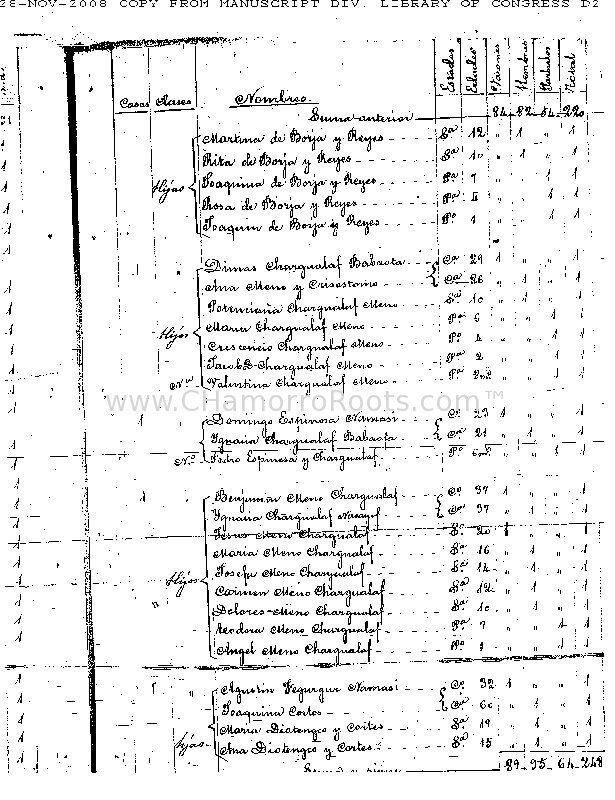 28-NOV-2008 COPY FROM MANUSCRIPT DIV. LIBRARY OF CONGRESS D2
Casas Clases Nombres Estados Varones Hembras Parbulos Total
Suma anterior 84 82 54 220
Martina de Borja y Reyes Sa 12 " 1 " 1
Rita de Borja y Reyes Sa 10 " 1 " 1
Hijos Joaquina de Borja y Reyes Pa 7 " " 1 1
Rosa de Borja y Reyes Pa " " 1 1
Joaquin de Borja y Reyes Po 1 " " 1 1
Dimas Chargualaf Babaota Co 29 1 " " 1
Ana Meno y Crisostomo Ca 26 " 1 " 1
Potenciana Chargualaf Meno Sa 10 " 1 " 1
Hijos Maria Chargualaf Meno Pa 6 " " 1 1
Crescencio Chargualaf Meno Po 4 " " 1 1
Chargualaf Meno 2 " " 1 1
No Valentina Chargualaf Meno Pa " " 1 1
www.CHamorroRoots.com™
1 Domingo Espinosa Namasi Co 23 1 " " 1
Ignacia Chargualaf Babaota Ca 21 " 1 " 1
No Pedro Espinosa y Chargualaf Po " " 1 1
1 Benjamin Meno Chargualaf Co 37 1 " " 1
Ignacia Chargualaf Ca 37 " 1 " 1
Jesus Meno Chargualaf So 20 1 " " 1
Maria Meno Chargualaf Sa 16 " 1 " 1
Hijos Josefa Meno Chargualaf Sa 14 " 1 " 1
Carmen Meno Chargualaf Sa 12 " 1 " 1
Dolores Meno Chargualaf Sa 10 " 1 " 1
Teodora Meno Chargualaf Pa 7 " " 1 1
Angel Meno Chargualaf Po 1 " " 1 1
1 Agustin Tegurgur Namasi Co 32 1 " " 1
Joaquina Cortes Ca 60 " 1 " 1
Maria Diotengco y Cortes Sa 19 " 1 " 1
hijas Ana Diotengco y Cortes Sa 15 " 1 " 1
89 95 64 248